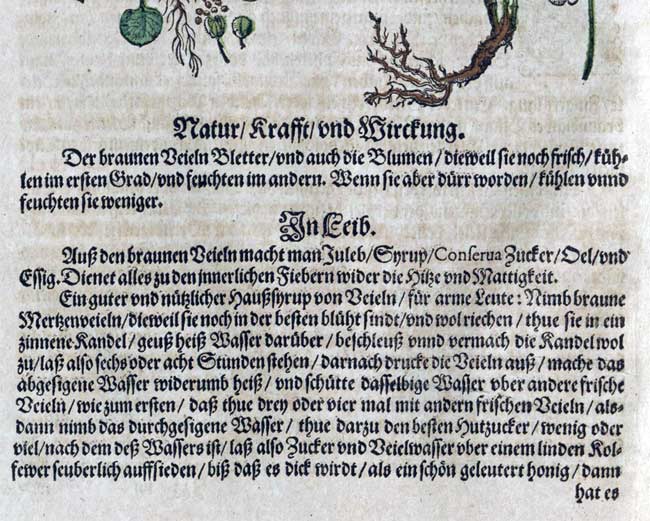 Natur/ Krafft/ vnd Wirckung.
Der braunen Veieln Bletter/ vnd auch die Blumen/ dieweil sie noch frisch/ küh-
len im ersten Grad/ vnd feuchten im andern. Wenn sie aber dürr worden/ kühlen vnnd
feuchten sie weniger.
In Leib.
Auß den braunen Veieln macht man Juleb/ Syrup/ Conserua Zucker/ Oel/ vnd
Essig. Dienet alles zu den jnnerlichen Fiebern wider die Hitze vnd Mattigkeit.
Ein guter vnd nützlicher Haußsyrup von Veieln/ für arme Leute: Nimb braune
Mertzenveieln/ dieweil sie noch in der besten blüht sindt/ vnd wol riechen/ thue sie in ein
zinnene Kandel/ geuß heiß Wasser darüber/ beschleuß vnnd vermach die Kandel wol
zu/ laß also sechs oder acht Stunden stehen/ darnach drucke die Veieln auß/ mache das
abgesigene Wasser widerumb heiß/ vnd schütte dasselbige Wasser vber andere frische
Veieln/ wie zum ersten/ daß thue drey oder vier mal mit andern frischen Veieln/ als-
dann nimb das durchgesigene Wasser/ thue darzu den besten Hutzucker/ wenig oder
viel/ nach dem deß Wassers ist/ laß also Zucker vnd Veielwasser vber einem linden Kol-
fewer seuberlich auffsieden/ biß daß es dick wirdt/ als ein schön geleutert honig/ dann
hat es